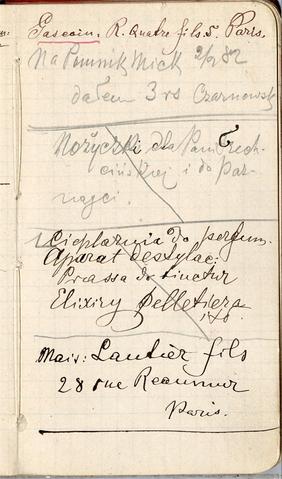 Gascoin. R. Quatre fils 5. Paris.
Na Pomnik Mick 2/2 82
dałem 3 rs Czarnowsk
Nożyczki dla Pani
i do paz-
nogci.
Cieplarnia do perfum.
Aparat destylac.
Prassa do tinctur
Elixiry Pelletiera
itd.
Mais: Lautier fils
28 rue Reaumur
Paris.